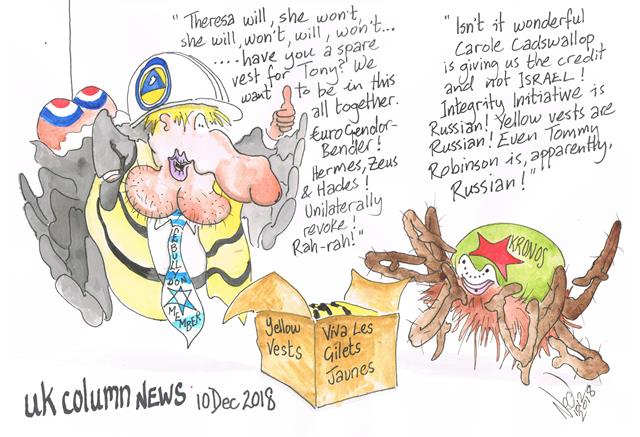 "Theresa will, she won't,
she will, won't, will, won't...
....have you a spare
vest for Tony? We
want to be in this
all together.
€uro Gendor-
Bender!
Hermes, Zeus
& Hades!
Unilaterally
revoke!
Rah-rah!"
"Isn't it wonderful
Carole Cadswallop
is giving us the credit
and not ISRAEL!
Integrity Initiative is
Russian! Yellow vests are
Russian! Even Tommy
Robinson is, apparently,
Russian!"
KRONOS
ICEBULLYDON
MEMBER
Yellow
Vests
Viva Les
Gilets
Jaunes
uk column NEWS 10 Dec 2018